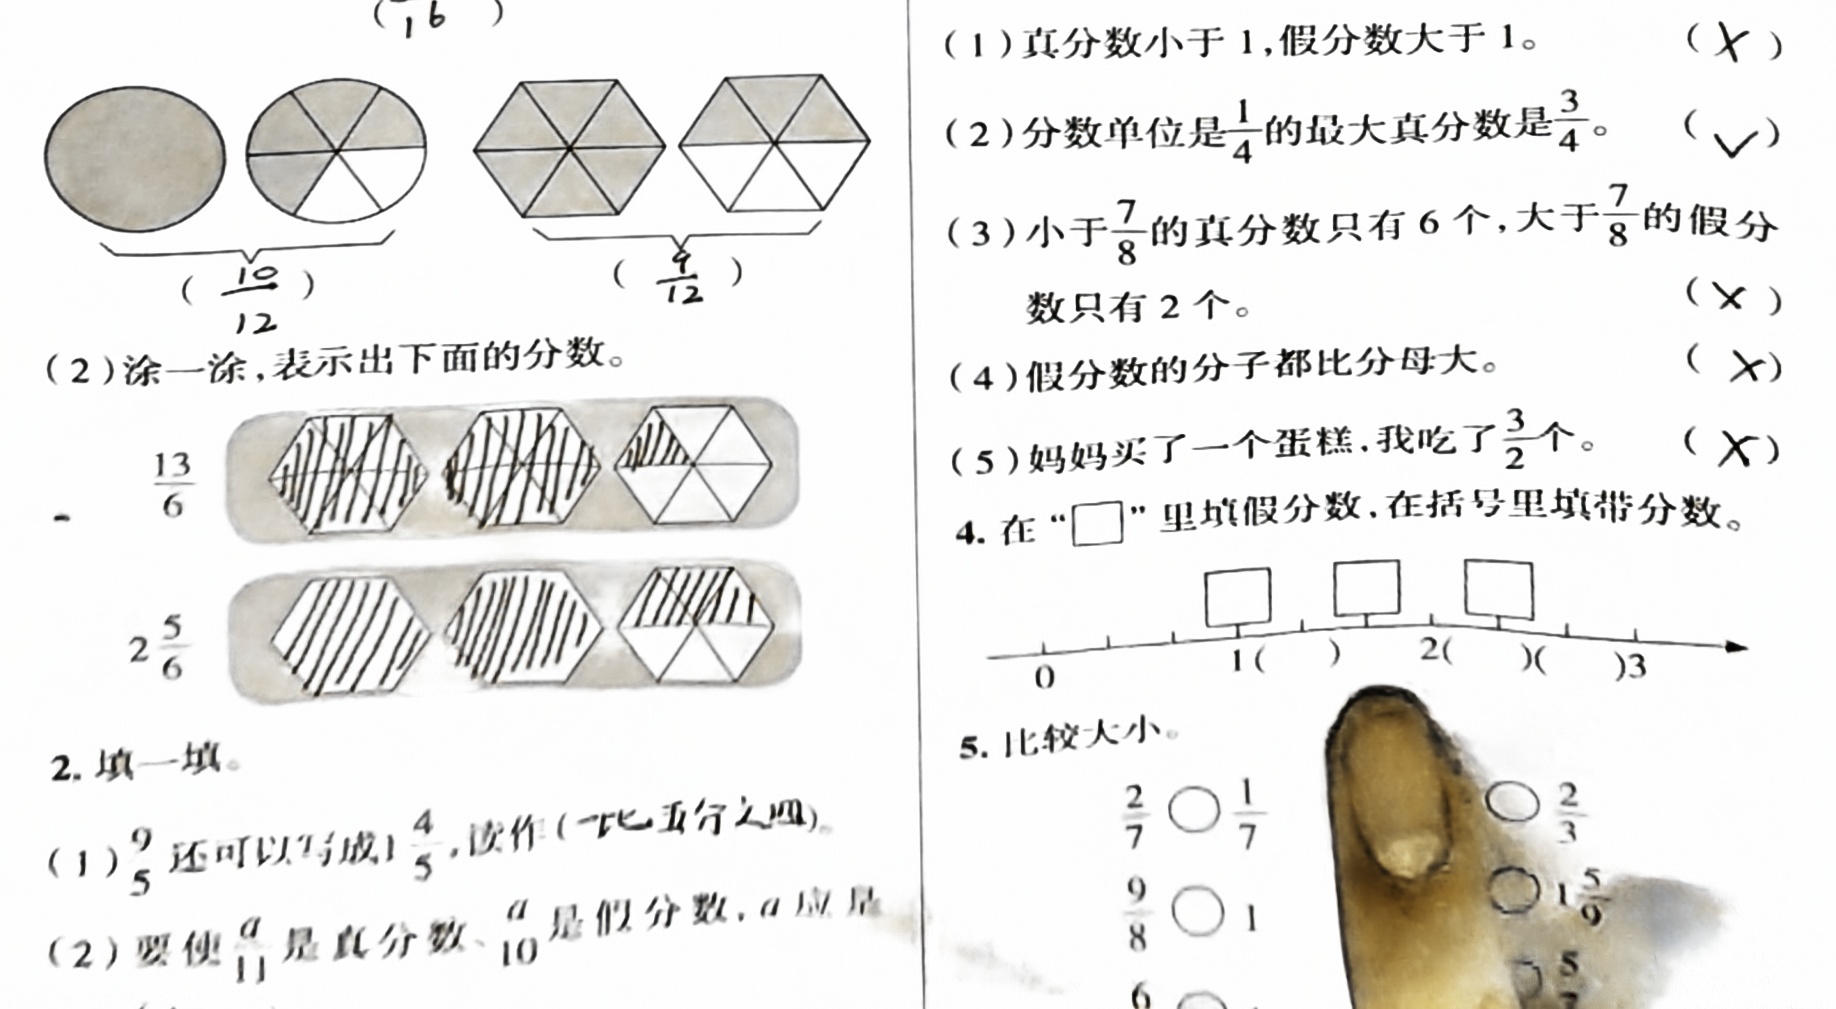 ( 16 )
( 10/12 ) ( 9/12 )
(2)涂一涂,表示出下面的分数。
13/6
2 5/6
2. 填一填。
(1) 9/5 还可以写成1 4/5,读作(一比五分之四)。
(2)要使 a/11 是真分数、a/10 是假分数,a应是
(1)真分数小于1,假分数大于1。 (X)
(2)分数单位是 1/4 的最大真分数是 3/4。 (✓)
(3)小于 7/8 的真分数只有6个,大于 7/8 的假分
数只有2个。 (×)
(4)假分数的分子都比分母大。 (×)
(5)妈妈买了一个蛋糕,我吃了 3/2 个。 (X)
4. 在“□”里填假分数,在括号里填带分数。
0 1( ) 2( )( )3
5. 比较大小。
2/7 ○ 1/7 ○ 2/3
9/8 ○ 1 ○ 1 5/9
6 ○ 5